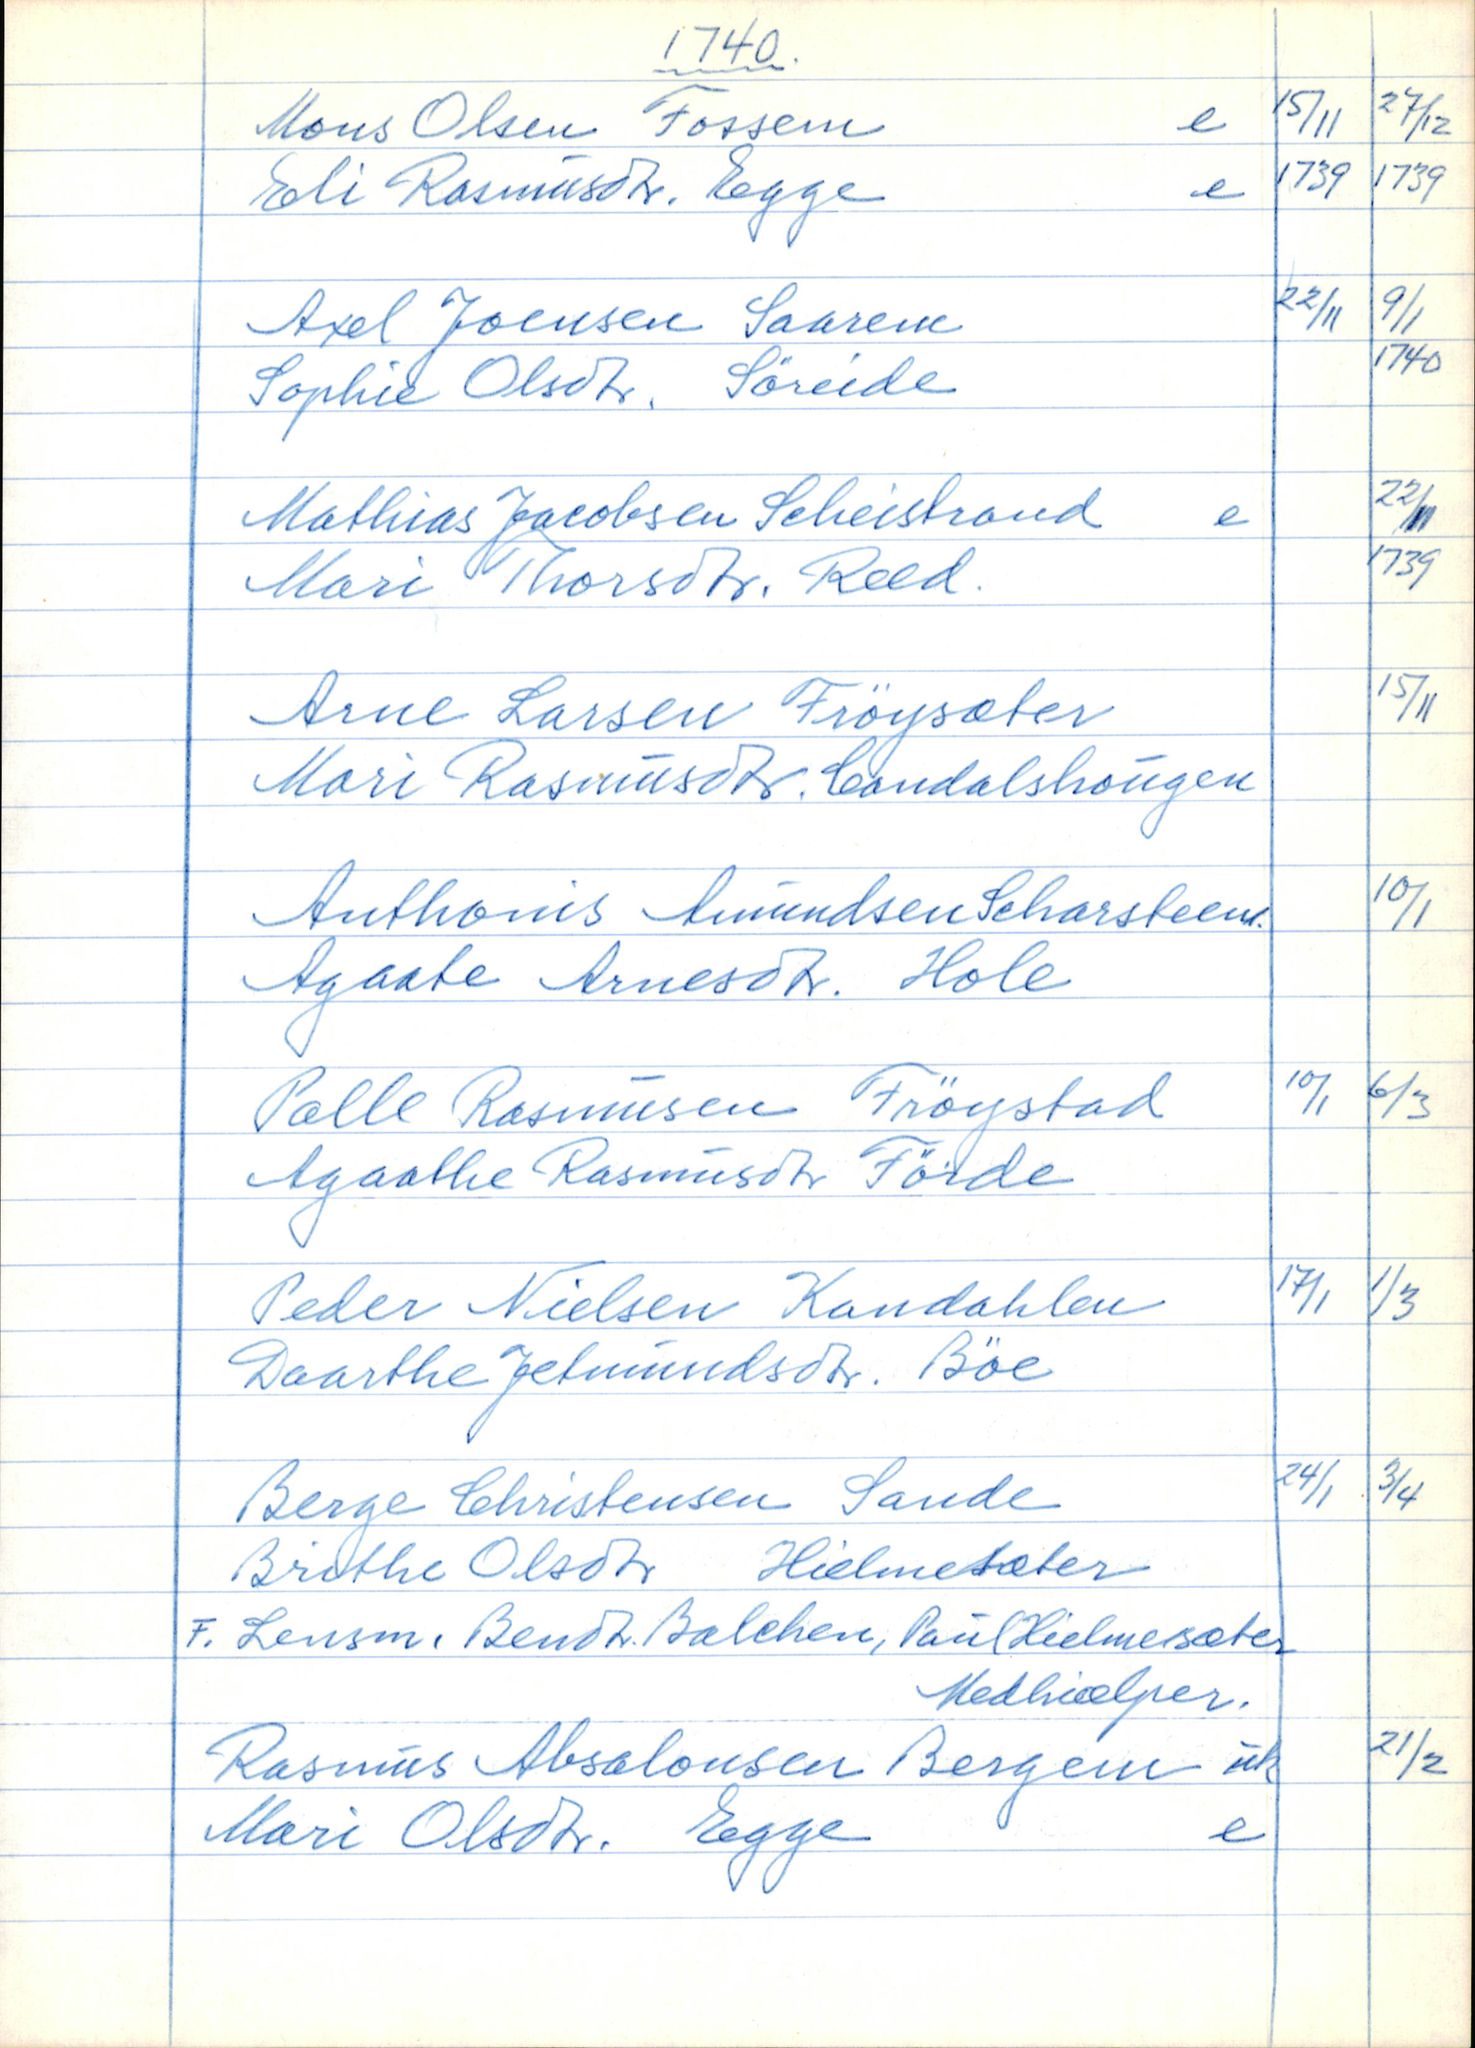 1740.
Mons Olsen Fossem e 15/11 27/12
Eli Rasmusdtr. Egge e 1739 1739
Axel Joensen Saarem 22/11 9/1
Sophie Olsdtr. Söreide 1740
Mathias Jacobsen Scheistrand e 22/11
Mari Thorsdtr. Reed. 1739
Arne Larsen Fröysæter 15/11
Mari Rasmusdtr. Candalshougen
Anthonis Amundsen Scharsteen. 10/1
Agaate Arnesdtr. Hole
Palle Rasmusen Fröystad 10/1 6/3
Agaathe Rasmusdtr Förde
Peder Nielsen Kandahlen 17/1 1/3
Daarthe Jetmundsdtr. Böe
Berge Christensen Sande 24/1 3/4
Brithe Olsdtr Hielmesæter
F. Lensm. Bendt. Balchen, Paul Hielmesæter
Medhiælper.
Rasmus Absalonsen Bergem uk 21/2
Mari Olsdtr. Egge e